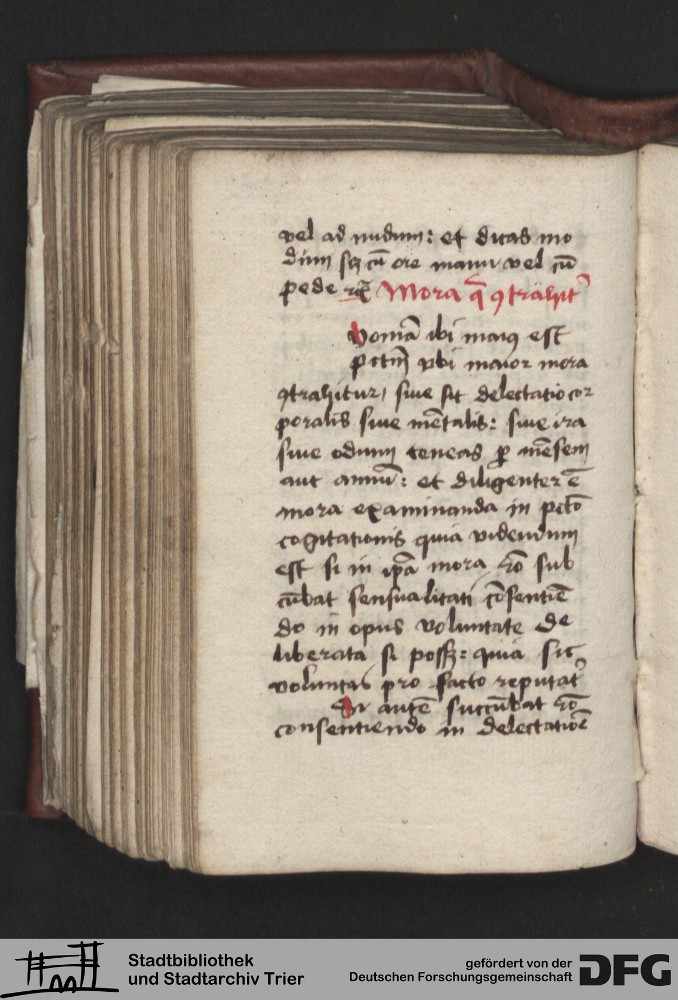 vel ad nudum: et dicas mo
dum scꝫ cū ore manu vel cū
pede Mora q̄ ꝯtrahit᷑
Nomā ibi maiꝰ est
pctm̄ vbi maior mora
ꝯtrahitur, siue sit delectatio cor
poralis siue mētalis: siue ira
siue odium teneas ꝑ mēsem
aut annū: et diligenter ē
mora examinanda in pctō
cogitationis quia videndum
est si in ip̄a mora rō sub
cūbat sensualitati cōsentiē
do in opus voluntate de
liberata si possꝫ: quia sic
voluntas pro facto reputat᷑
autē succūbat rō
consentiendo in delectatiōē
Stadtbibliothek
und Stadtarchiv Trier
gefördert von der
Deutschen Forschungsgemeinschaft
DFG